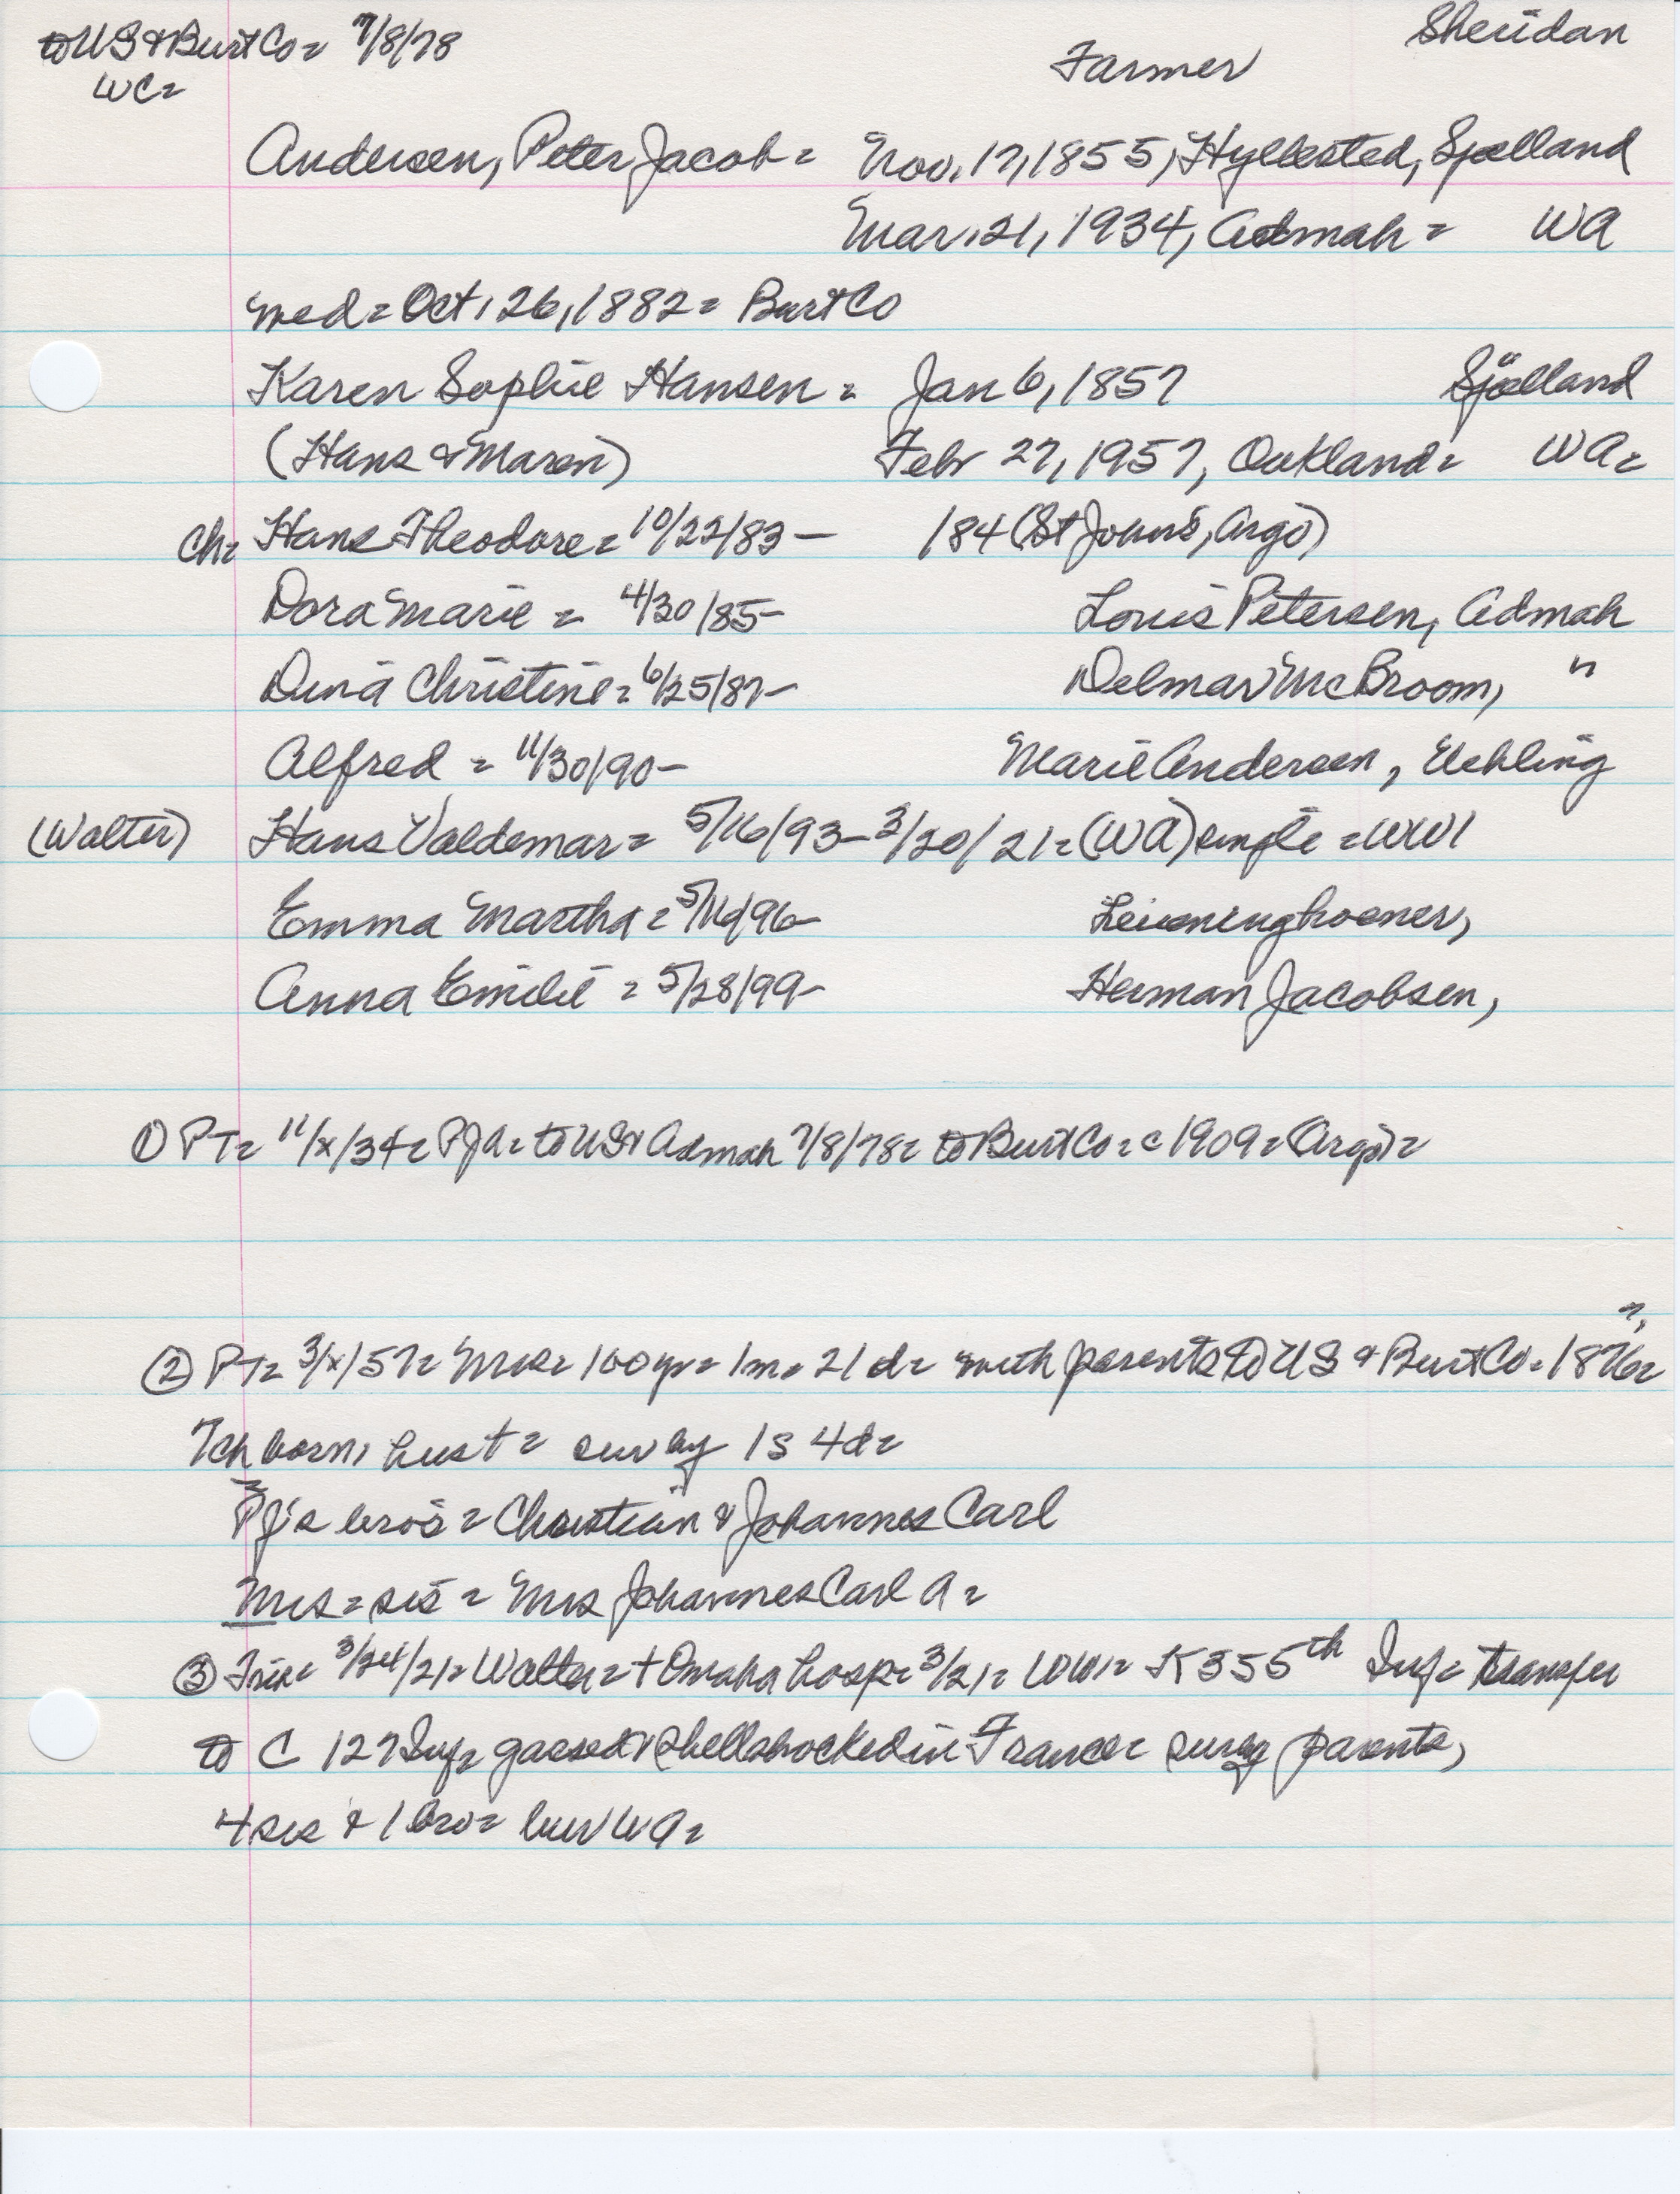 to US & Burt Co = 7/8/78
Farmer
Sheridan
WC=
Andersen, Peter Jacob = Nov. 17, 1855, Hyllested, Sjaelland
Mar. 21, 1934, Admah = WA
med = Oct. 26, 1882 = Burt Co
Karen Sophie Hansen = Jan 6, 1857 Sjaelland
(Hans & Maren) Febr 27, 1957, Oakland = WA =
Ch= Hans Theodore = 10/22/83 — 184 (St John's, Argo)
Dora Marie = 4/30/85 – Louis Petersen, Admah
Dina Christine = 6/25/87 – Delmar McBroom, "
Alfred = 11/30/90 – Marie Andersen, Uehling
(Walter) Hans Valdemar = 5/16/93 – 3/20/21 = (WA) single = WWI
Emma Martha = 5/16/96 –
Anna Emilie = 5/28/99 – Herman Jacobsen,
① PT= 11/x/34 = PJA = to US & Admah 7/8/78 = to Burt Co = c 1909 = (Argo) =
② PT= 3/x/57 = Mrs = 100 yr = 1 m = 21 d = with parents to US & Burt Co = 1876 =
7 ch born, hus + = surv by 1 s 4 d =
PJ's bros = Christian & Johannes Carl
Mrs = sis = Mrs Johannes Carl A =
③ 3/24/21 = Walter = + Omaha hosp = 3/21 = WWI = K 355th Inf = transfer
to C 127 Inf = gassed & shellshocked in France = surv by parents,
4 sis & 1 bro = bur WA =